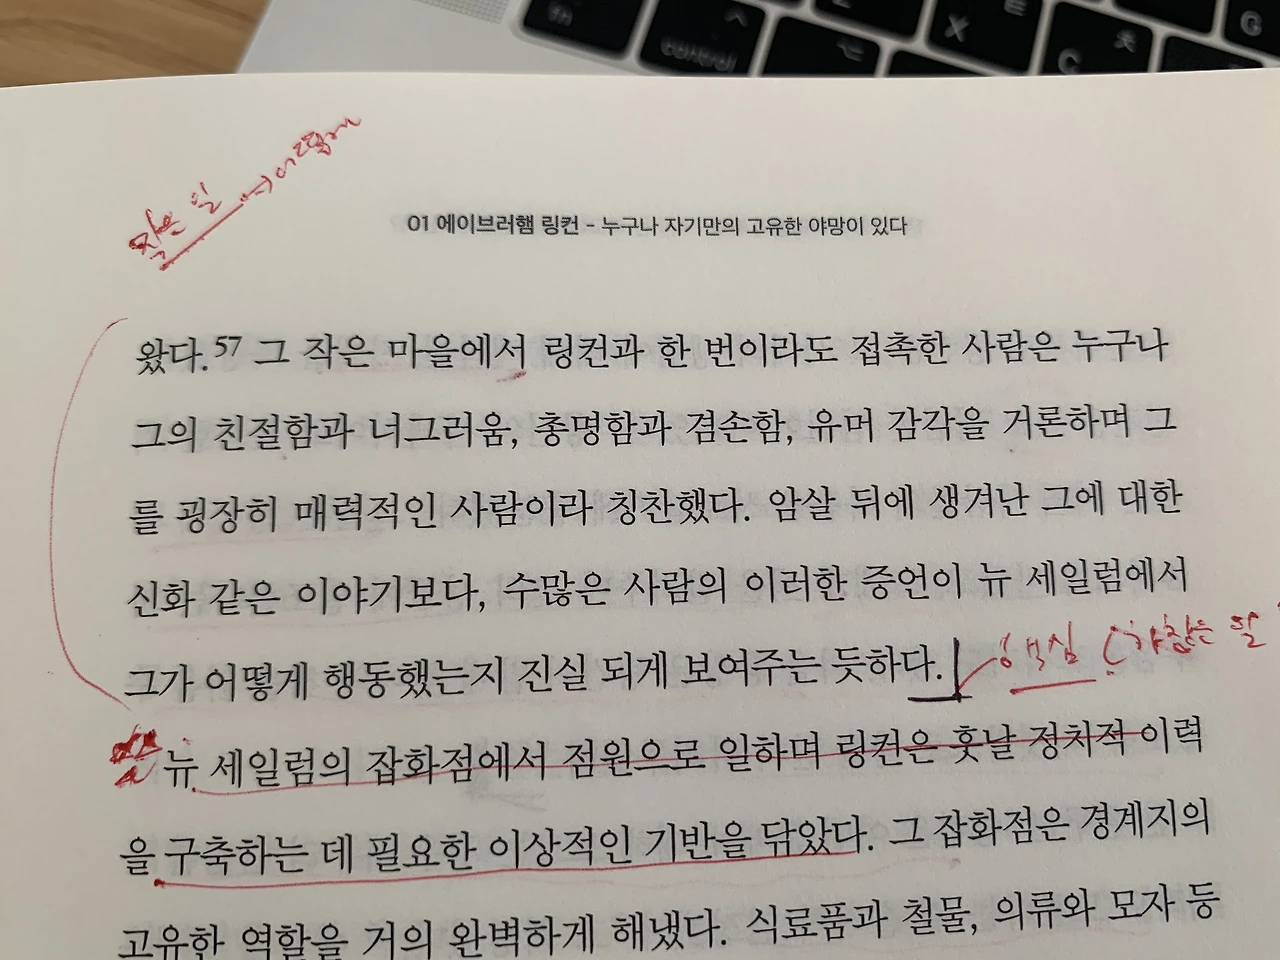 fn
control
X
C
G
작은 일 → 어떻게
01 에이브러햄 링컨 - 누구나 자기만의 고유한 야망이 있다
왔다.57 그 작은 마을에서 링컨과 한 번이라도 접촉한 사람은 누구나
그의 친절함과 너그러움, 총명함과 겸손함, 유머 감각을 거론하며 그
를 굉장히 매력적인 사람이라 칭찬했다. 암살 뒤에 생겨난 그에 대한
신화 같은 이야기보다, 수많은 사람의 이러한 증언이 뉴 세일럼에서
그가 어떻게 행동했는지 진실 되게 보여주는 듯하다.
핵심
뉴 세일럼의 잡화점에서 점원으로 일하며 링컨은 훗날 정치적 이력
을 구축하는 데 필요한 이상적인 기반을 닦았다. 그 잡화점은 경계지의
고유한 역할을 거의 완벽하게 해냈다. 식료품과 철물, 의류와 모자 등